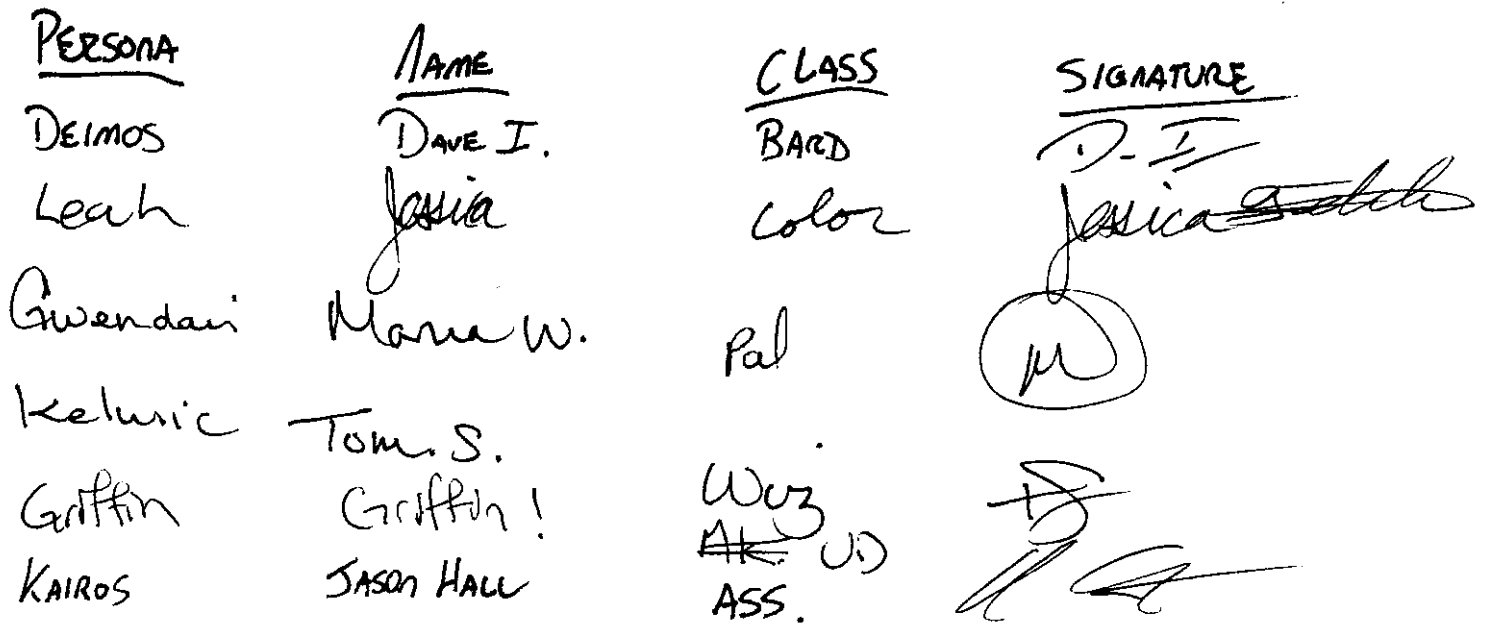 PERSONA NAME CLASS SIGNATURE
DEIMOS DAVE I. BARD D-I
Leah Jessica Color Jessica
Gwendain Maria W. Pal M
Kelusic Tom. S. Wiz
Griffin Griffin! UD
KAIROS JASON HALL ASS.